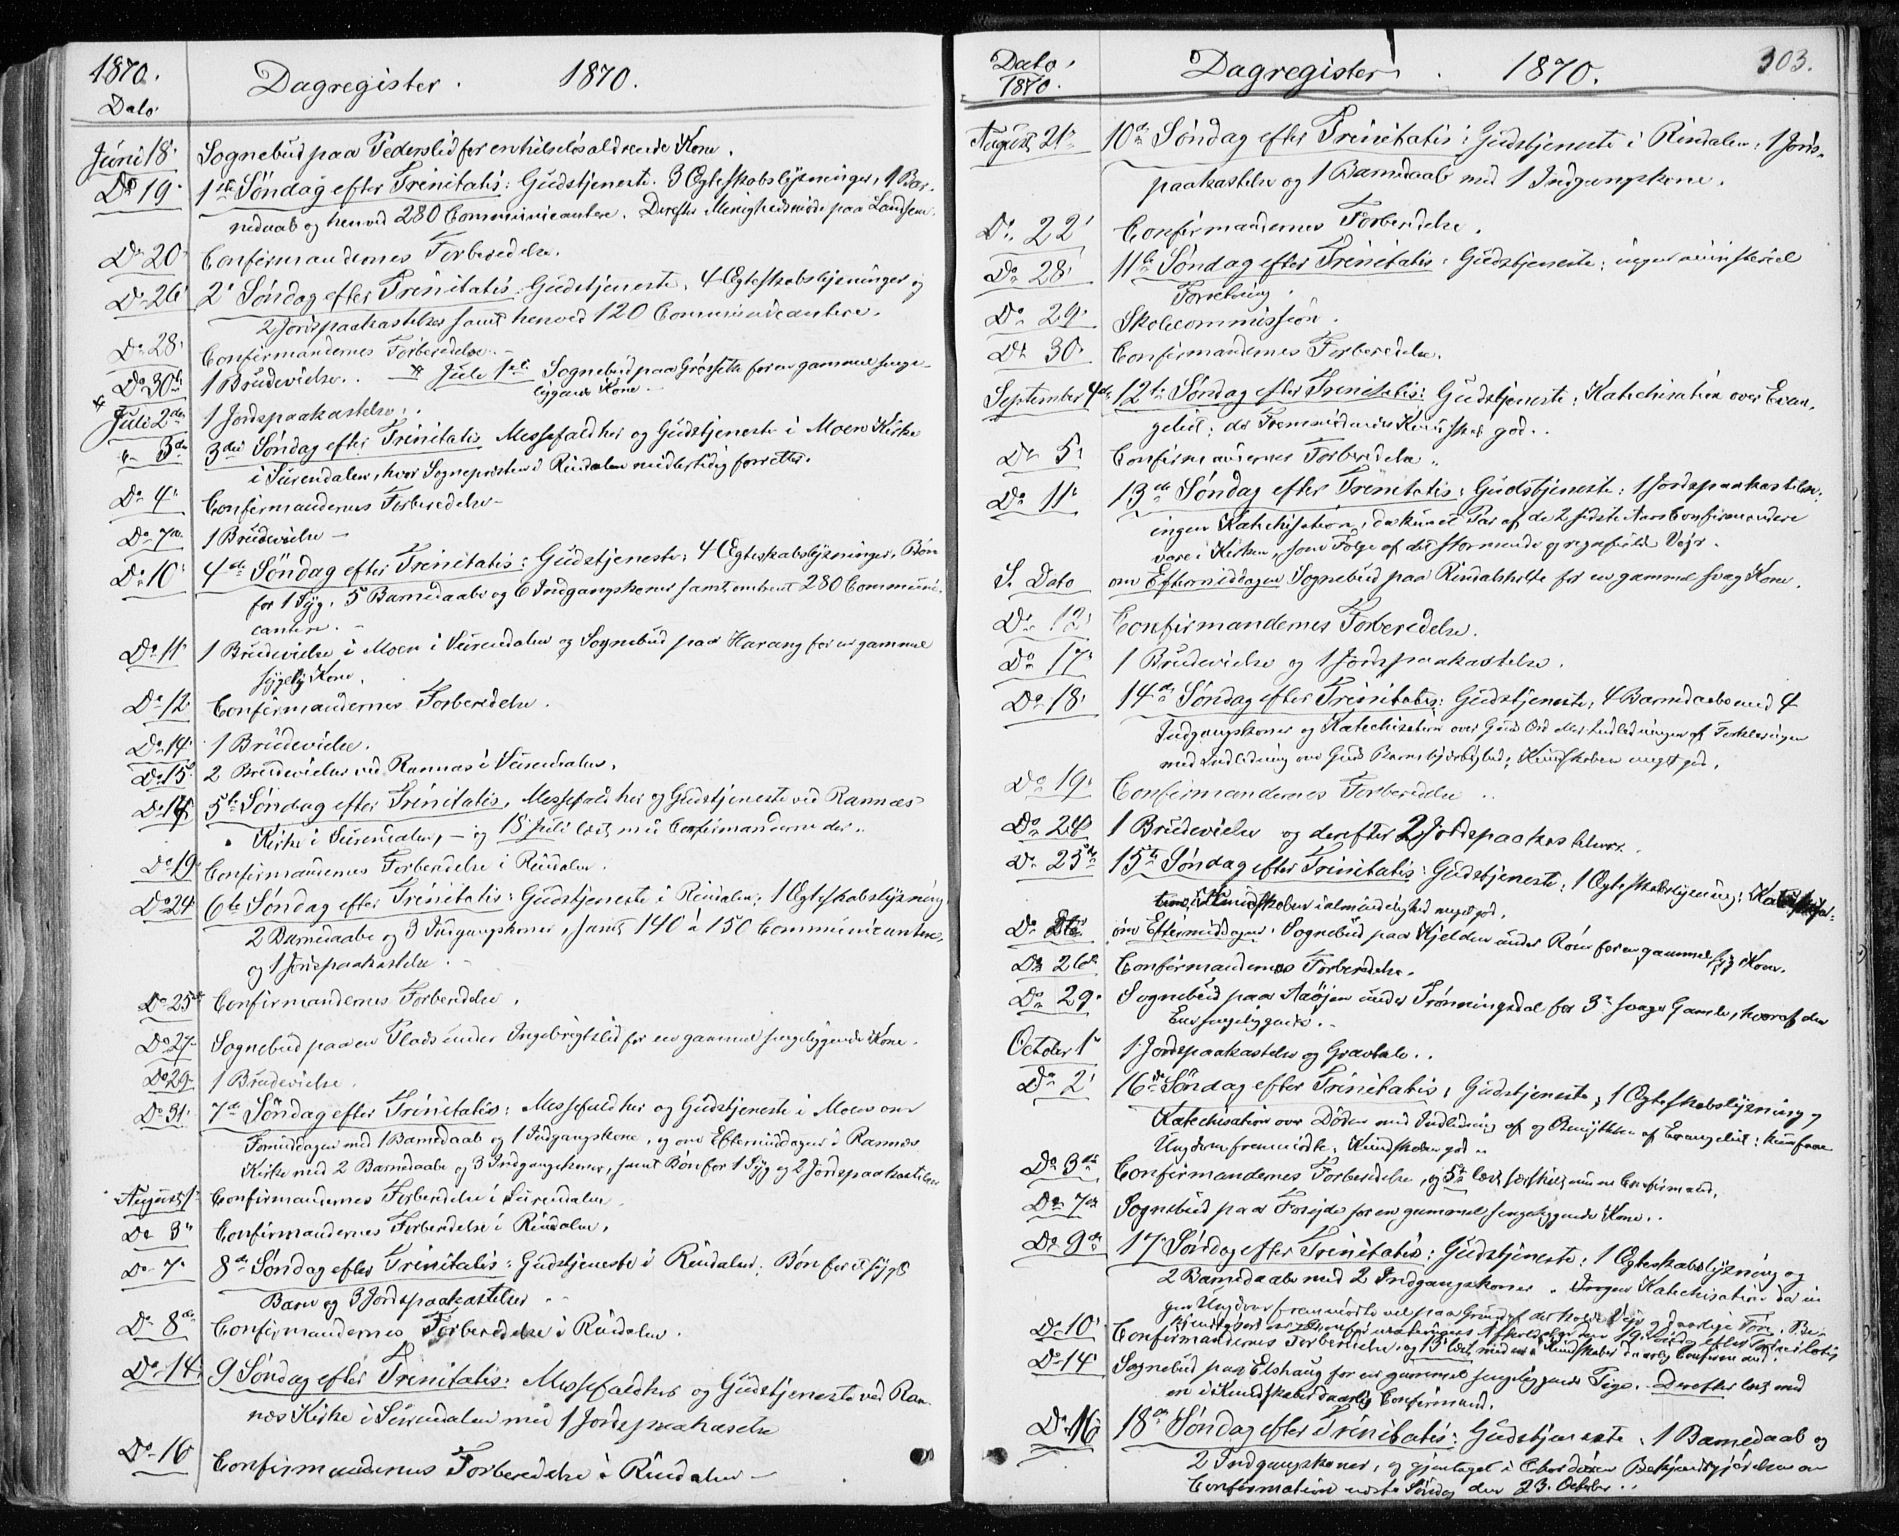 1870.
Dato
Dagregister. 1870.
Juni 18. Sognebud paa Pederslid for en helseløs aldrende Kone.
Do 19. 1ste Søndag efter Trinitatis: Gudstjeneste. 3 Egteskabslysninger, 1 Bar-
nedaab og henved 280 Communicantere. Derefter Menighedsmøde paa
Do 20. Confirmandernes Forberedelse.
Do 26. 2. Søndag efter Trinitatis Gudstjeneste, 4 Egteskabslysninger og
2 Jordspaakastelser samt henved 120 Communicantere.
Do 28. Confirmandernes Forberedelse.
Do 30. 1 Brudevielse. Juli 1ste Sognebud paa Grøsette for en gammel senge-
liggende Kone.
Juli 2den 1 Jordspaakastelse.
" 3die 3die Søndag efter Trinitatis Messefald her og Gudstjeneste i Moen Kirke
i Surendalen, hvor Sognepresten i Rindalen midlertidig forretter.
Do 4. Confirmandernes Forberedelse
Do 7de 1 Brudevielse
Do 10. 4de Søndag efter Trinitatis: Gudstjeneste; 4 Egteskabslysninger, Bøn
for 1 Syg, 5 Barnedaabe og 6 Indgangskoner samt omtrent 280 Communi-
cantere.
Do 11. 1 Brudevielse i Moen i Surendalen og Sognebud paa Harang for en gammel
sygelig Kone.
Do 12. Confirmandernes Forberedelse.
Do 14. 1 Brudevielse.
Do 15. 2 Brudevielser ved Rannæs i Surendalen.
Do 5te Søndag efter Trinitatis, Messefald her og Gudstjeneste ved Rannæs
Kirke i Surendalen, og 15 Juli læst med Confirmanderne der.
Do 19. Confirmandernes Forberedelse i Rindalen.
Do 24 6te Søndag efter Trinitatis: Gudstjeneste i Rindalen; 1 Egteskabslysning
2 Barnedaabe og 3 Indgangskoner, samt 140 à 150 Communicantere,
og 1 Jordspaakastelse.
Do 25de Confirmandernes Forberedelse.
Do 27. Sognebud paa en Plads under Ingebrigtslid for en gammel sengeliggende Kone.
Do 29. 1 Brudevielse.
Do 31. 7de Søndag efter Trinitatis: Messefald her og Gudstjeneste i Moen om
Formiddagen med 1 Barnedaab og 1 Indgangskone, og om Eftermiddagen i Rannæs
Kirke med 2 Barnedaabe og 3 Indgangskoner, samt Bøn for 1 Syg og 2 Jordspaakastelser
August 1. Confirmandernes Forberedelse i Surendalen
Do 3. Confirmandernes Forberedelse i Rindalen.
Do 7. 8de Søndag efter Trinitatis: Gudstjeneste i Rindalen. Bøn for et sygt
Barn og 3 Jordspaakastelser
Do 8de Confirmandernes Forberedelse i Rindalen.
Do 14. 9 Søndag efter Trinitatis: Messefald her og Gudstjeneste ved Ran-
næs Kirke i Surendalen med 1 Jordspaakastelse
Do 16 Confirmandernes Forberedelse i Rindalen
Dato.
1870.
Dagregister. 1870. 303.
August 21. 10de Søndag efter Trinitatis: Gudstjeneste i Rindalen; 1 Jords-
paakastelse og 1 Barnedaab med 1 Indgangskone.
Do 22. Confirmandernes Forberedelse.
Do 28. 11te Søndag efter Trinitatis: Gudstjeneste; ingen ministeriel
Forretning.
Do 29. Skolecommission.
Do 30. Confirmandernes Forberedelse.
September 4de 12te Søndag efter Trinitatis: Gudstjeneste; Katechisation over Evan-
geliet; de Fremmødendes Kundskab god.
Do 5. Confirmandernes Forberedelse.
Do 11. 13de Søndag efter Trinitatis: Gudstjeneste; 1 Jordspaakastelse;
ingen Katechisation, da kun et Par af de 2 sidste Aars Confirmandere
vare i Kirken, som Følge af det stormende og regnfulde Veir.
S. Dato om Eftermiddagen Sognebud paa Rindalsholte for en gammel svag Kone.
Do 12. Confirmandernes Forberedelse.
Do 17. 1 Brudevielse og 1 Jordspaakastelse.
Do 18. 14de Søndag efter Trinitatis: Gudstjeneste; 4 Barnedaabe med 4
Indgangskoner og Katechisation over Guds Ord eller Indledningen af Forklaringen
med Indledning om Guds; Kundskaben meget god.
Do 19. Confirmandernes Forberedelse
Do 24 1 Brudevielse og derefter 2 Jordspaakastelser.
Do 25de 15de Søndag efter Trinitatis: Gudstjeneste; 1 Egteskabslysning;
Kundskaben i almindelighed meget god.
Do om Eftermiddagen Sognebud paa Kjelden under Røen for en gammel syg Kone.
Do 26de Confirmandernes Forberedelse.
Do 29. Sognebud paa Aaøjen under Trønningsdal for 3 svage Gamle, hvoraf den
Ene sengeliggende.
October 1. 1 Jordspaakastelse og Gravtale.
Do 2. 16de Søndag efter Trinitatis; Gudstjeneste; 1 Egteskabslysning,
Katechisation over Døden med Indledning af og Benyttelse af Evangeliet; kun faae
Ungdom fremmødte; Kundskaben god
Do 3die Confirmandernes Forberedelse, og 5te læst særskilt med en Confirmand.
Do 7de Sognebud paa Foseide for en gammel sengeliggende Kone.
Do 9de 17. Søndag efter Trinitatis: Gudstjeneste; 1 Egteskabslysning og
2 Barnedaabe med 2 Indgangskoner. Ingen Katechisation da in-
gen Ungdom fremmødte vel paa Grund af det Veir og daarlige Føre. Be-
den 19. Søndag efter Trinitatis
Do 10. Confirmandernes Forberedelse, og 13 læst med en i Kundskaber daarlig Confirmand.
Do 14. Sognebud paa Elshaug for en gammel sengeliggende Pige. Derefter læst med
en i Kundskaber daarlig Confirmand.
Do 16. 18de Søndag efter Trinitatis: Gudstjeneste, 1 Barnedaab og
2 Indgangskoner, og gjentaget i Chordøren Bekjendtgjørelsen om
Confirmation næste Søndag den 23. October.